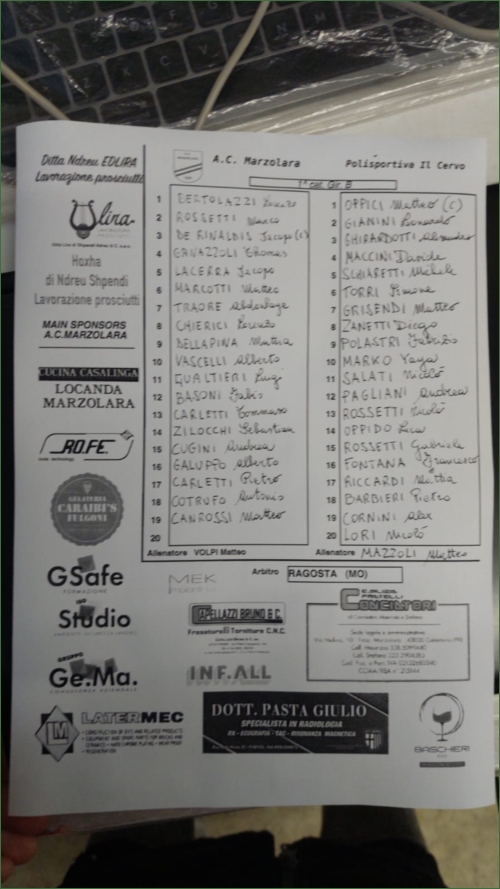 Ditta Ndreu EDLIRA
Lavorazione prosciutti
lira
Hoxha
di Ndreu Shpendi
Lavorazione prosciutti
MAIN SPONSORS
A.C. MARZOLARA
CUCINA CASALINGA
LOCANDA
MARZOLARA
RO.FE.
GELATERIA
CARAIBI'S
FULGONI
GSafe
FORMAZIONE
Studio
GRUPPO
Ge.Ma.
CONSULENZA AZIENDALE
A.C. Marzolara
Polisportiva Il Cervo
1^ cat. Gir. B
1 BERTOLAZZI Lorenzo
2 ROSSETTI Marco
3 DE RINALDIS Jacopo (c)
4 GAVAZZOLI Thomas
5 LACERRA Jacopo
6 MARCOTTI Matteo
7 TRAORE Abdoulaye
8 CHIERICI Lorenzo
9 DELLAPINA Mattia
10 VASCELLI Alberto
11 GUALTIERI Luigi
12 BASONI Fabio
13 CARLETTI Tommaso
14 ZILOCCHI Sebastian
15 CUGINI Andrea
16 GALUPPO Alberto
17 CARLETTI Pietro
18 COTRUFO Antonio
19 CANROSSI Matteo
20
Allenatore VOLPI Matteo
1 OPPICI Matteo (c)
2 GIANINI Leonardo
3 GHIRARDOTTI Alessandro
4 MACCINI Davide
5 SCHIARETTI Michele
6 TORRI Simone
7 GRISENDI Matteo
8 ZANETTI Diego
9 POLASTRI Fabrizio
10 MARKO Yaya
11 SALATI Nicolò
12 PAGLIANI Andrea
13 ROSSETTI Nicolò
14 OPPIDO Luca
15 ROSSETTI Gabriele
16 FONTANA Francesco
17 RICCARDI Mattia
18 BARBIERI Pietro
19 CORNINI Alex
20 LORI Nicolò
Allenatore MAZZOLI Matteo
Arbitro RAGOSTA (MO)
MEK
CAPELLAZZI BRUNO & C.
Fresatura e Torniture C.N.C.
INF.ALL
FRATELLI
CONCILTORI
LATERMEC
DOTT. PASTA GIULIO
SPECIALISTA IN RADIOLOGIA
RX - ECOGRAFIA - TAC - RISONANZA MAGNETICA
BASCHERI